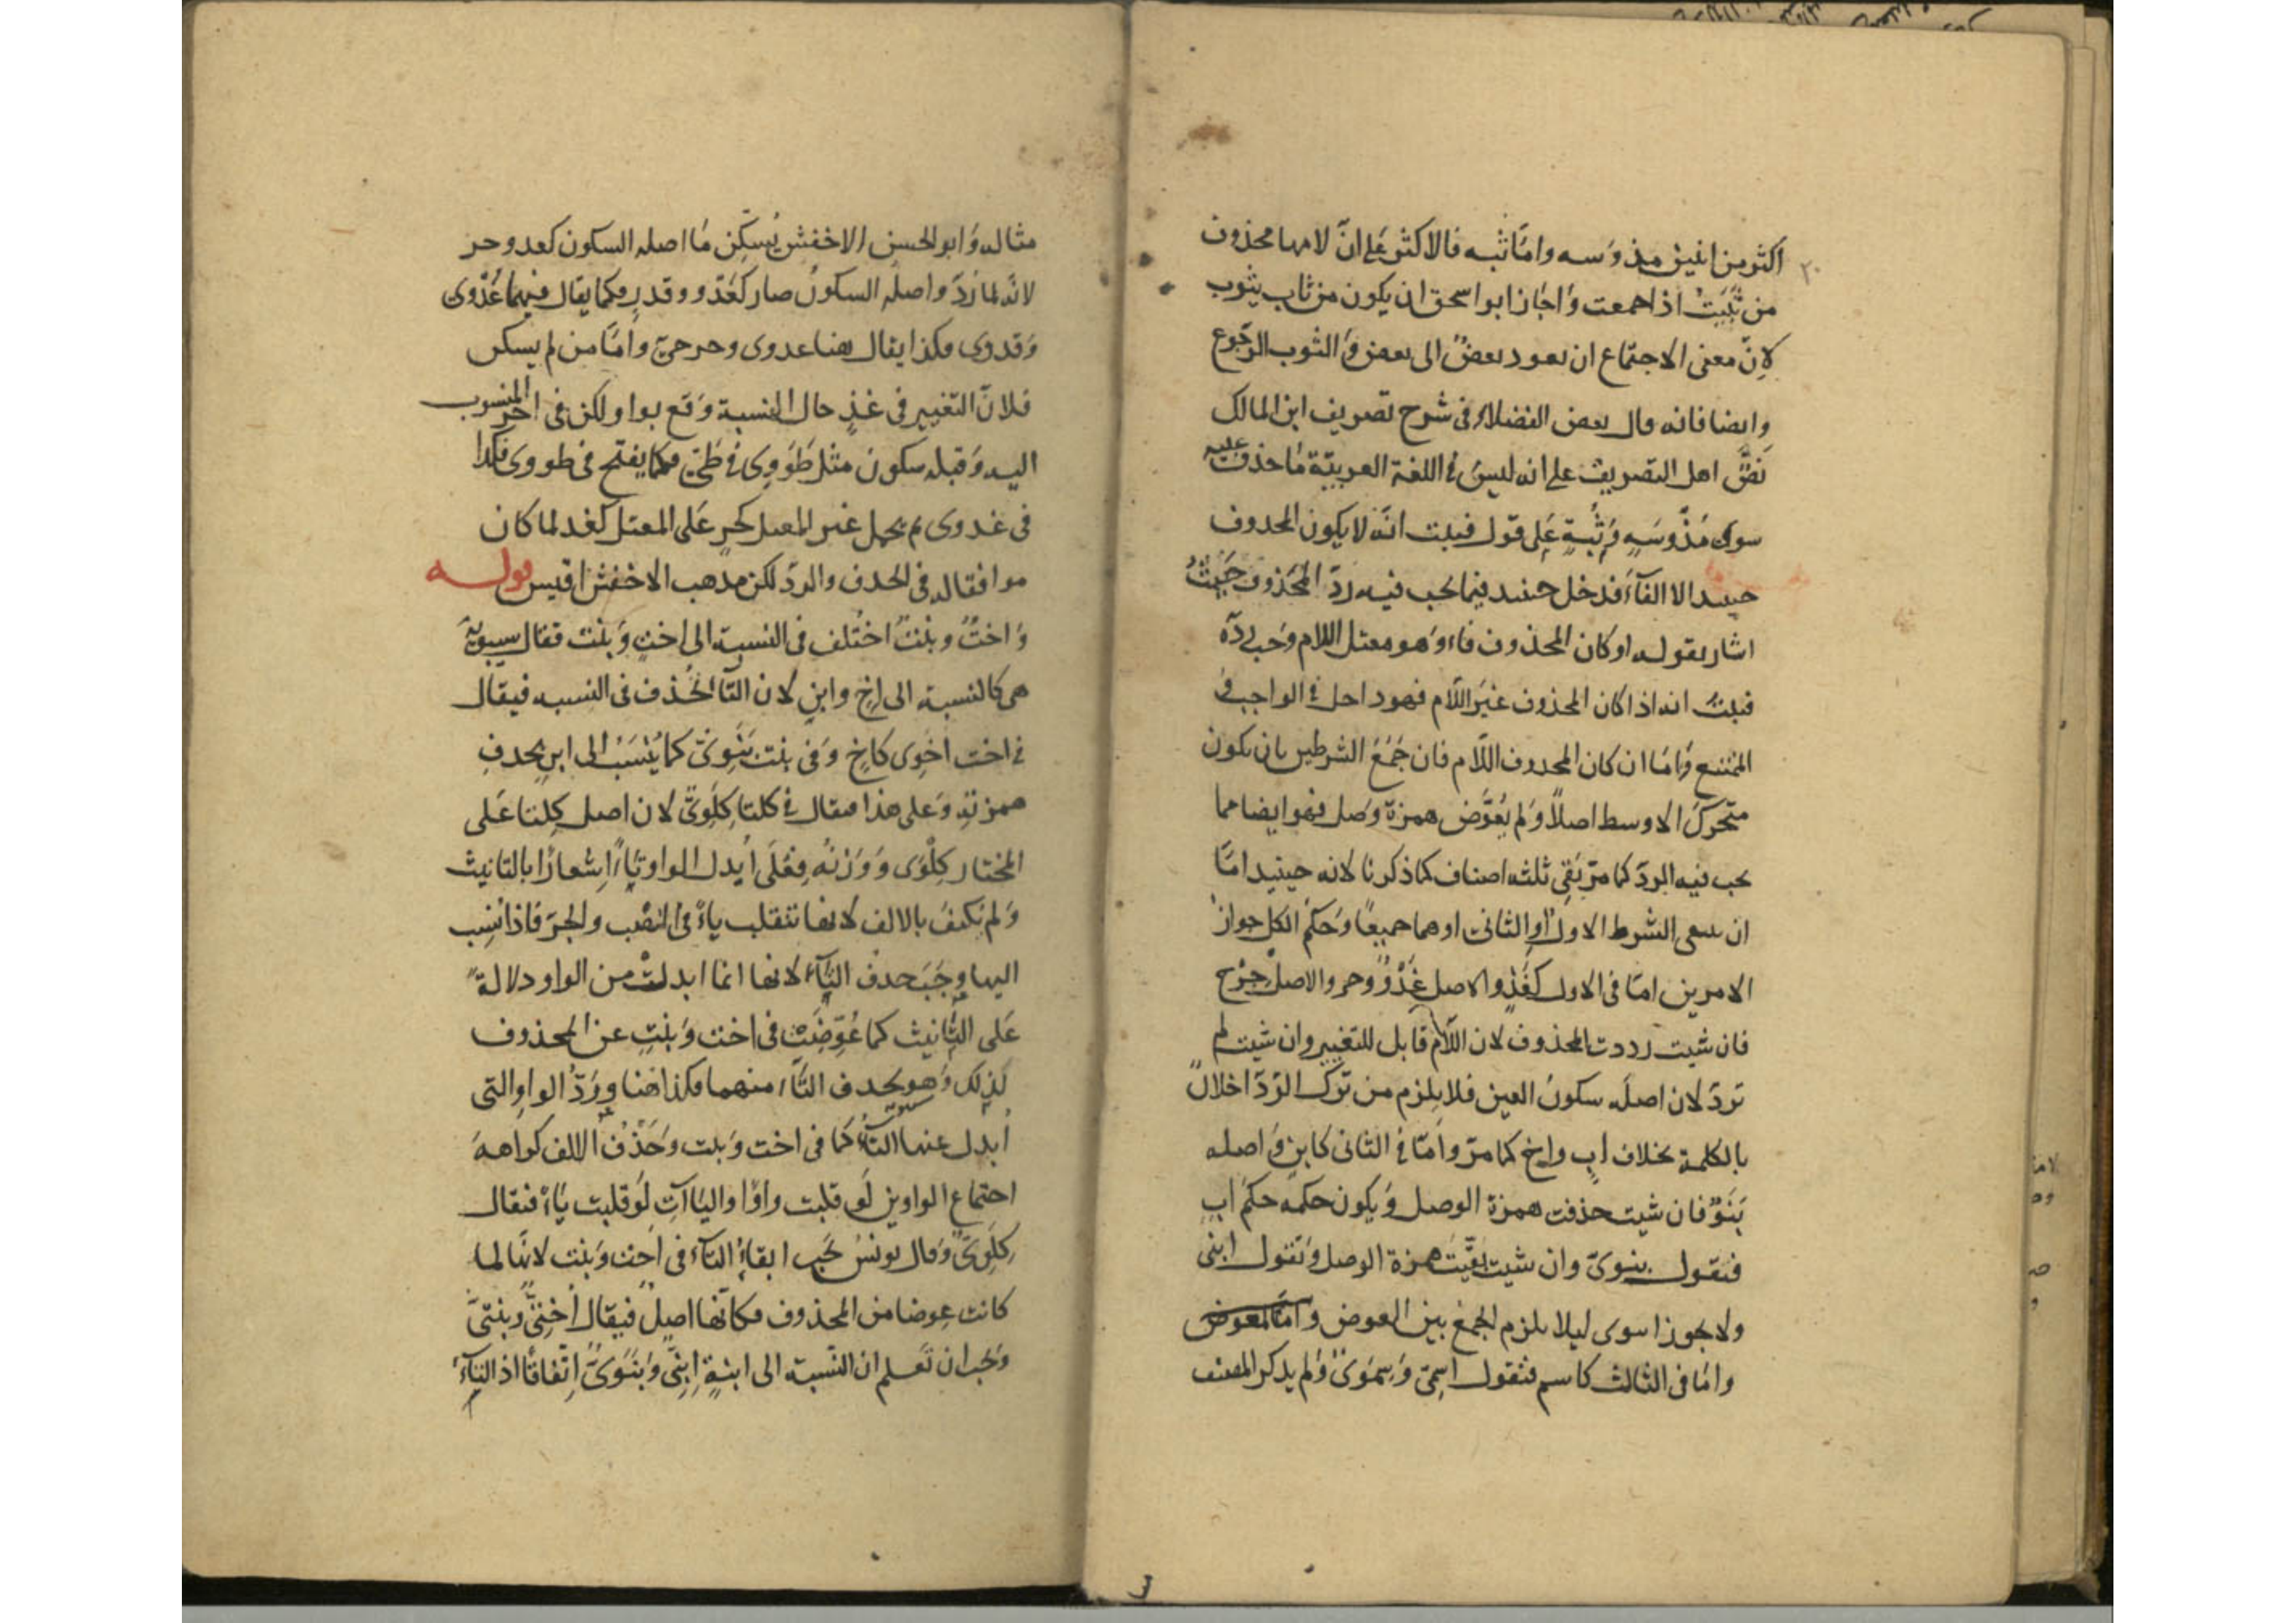 اكثر من اثنين مذ وَسه وامّا ثبه فالاكثر عَلى انّ لامها محذوف
من ثَبَيتُ اذا جمعت وَاجاز ابو اسحق ان يكون من ثاب يثوب
لانّ معنى الاجتماع ان يعود بعضٌ الى بعض وَالثوب الرجوع
وايضا فانه قال بعض الفضلاء فى شرح تصريف ابن المالك
نَصَّ اهل التصريف على انه ليس فى اللغة العربيّة مَا حذفت عينه
سوى مُذ وسَهٍ وَثُبَةٍ عَلى قول فثبت انّه لا يكون المحذوف
حينئذ الا الفاءَ فدخل حينئذ فيما يجب فيه ردّ المحَذوف حَيثُ
اشار بقوله او كان المحذوف فاء وَهو معتل اللام وَجب ردّه
فثبت انه اذا كان المحذوف غيرَ اللّام فهو داخل فى الواجب وَ
الممتنع وَامّا ان كان المحذوف اللّام فان جَمَعَ الشرطين بان يكون
متحركَ الاوسط اصلاً وَلم يُعوَّض همزةَ وَصل فهو ايضا مما
يجب فيه الردّ كما مرّ بَقِى ثلثه اصناف كما ذكرنا لانه حينئذ امّا
ان ينتفى الشرط الاول اوِ الثانى او هما جميعًا وَحكم الكل جواز
الامرين امّا فى الاول كغَدٍ والاصل غَدْوٌ وحر والاصل حِرْح
فان شيت رددت المحذوف لان اللّام قابل للتغيير وان شيت لم
تردّ لان اصلَه سكونُ العين فلا يلزم من ترك الرّدّ اخلالٌ
بالكلمة بخلاف ابٍ واخٍ كما مرّ وامّا فى الثانى كابن وَاصله
بَنَوٌ فان شيت حذفت همزة الوصل وَيكون حكمه حكم ابٍ
فتقول بنوىّ وان شيت بقّيتَ همزة الوصل وَتقول ابنى
ولا يجوز ابنوى ليلا يلزم الجمع بين العوض وامّا المعوض
وامّا فى الثالث كاسم فتقول اسمِىّ وَسِمَوىّ وَلم يذكر المصنف
مثاله وَابو الحسن الاخفش يُسكّن مَا اصله السكون كغد وحر
لانه لما رَدّ واصلُه السكونُ صار كغَدْو وقدر فكما يقال فيهما غَدْوى
وَقدوى فكذا يقال هنا غدوى وحرحىّ وامّا من لم يسكن
فلانّ التغيير فى غدٍ حال النسبة وَقع بواو لكن فى اخر المنسوب
اليه وَقبله سكون مثل طَوَوِى فى طَىّ فكما يفتح فى طووى فكذا
فى غدوى ثم يحمل غير المعتل كحرٍ عَلى المعتل كغد لما كان
موافقا له فى الحذف والردّ لكن مذهب الاخفش اقيس قوله
وَاختٌ وبنتٌ اختُلف فى النسبة الى اختٍ وَبنت فقال سيبويه
هى كالنسبة الى اخٍ وابنٍ لان التاء تُحذف فى النسبه فيقال
فى اخت اخَوِى كاخٍ وَفى بنت بَنَوِىّ كما يُنْسَبُ الى ابنٍ بحذفِ
همزته وَعلى هذا فيقال فى كلتا كِلَوِىّ لان اصل كِلتا عَلى
المختار كِلْوَى وَوَزنُه فِعْلَى اُبدل الواو تاءً اِشعارًا بالتانيث
وَلم يُكتفَ بالالف لانها تنقلب ياءً فى النصْب والجرّ فاذا نُسِب
اليها وجَبَ حذفُ التاء لانها انما ابدلتْ من الواو دلالةً
عَلى التانيث كما عُوّضَت فى اخت وَبنتٍ عن المحذوف
لذلك وَهو يحذف التاء منهما فكذا هَنا ورَدُّ الواو التى
اُبدل عنها التاءُ كما فى اخت وَبنت وَحَذْفُ الالف كراهة
اجتماع الواوين لَو قلبت واوًا والياآتِ لَو قلبت ياءً فيقال
كِلَوِىٌّ وَقال يونس يَجب ابقاءُ التاء فى اخت وَبنت لانها لما
كانت عوضا من المحذوف فكانّها اصلٌ فيقال اُختىٌّ وَبنتىّ
وَيجب ان تَعلم ان النّسبة الى ابنةٍ اِبنِىّ وَبَنَوىٌّ اِتّفاقًا اذ التاءُ